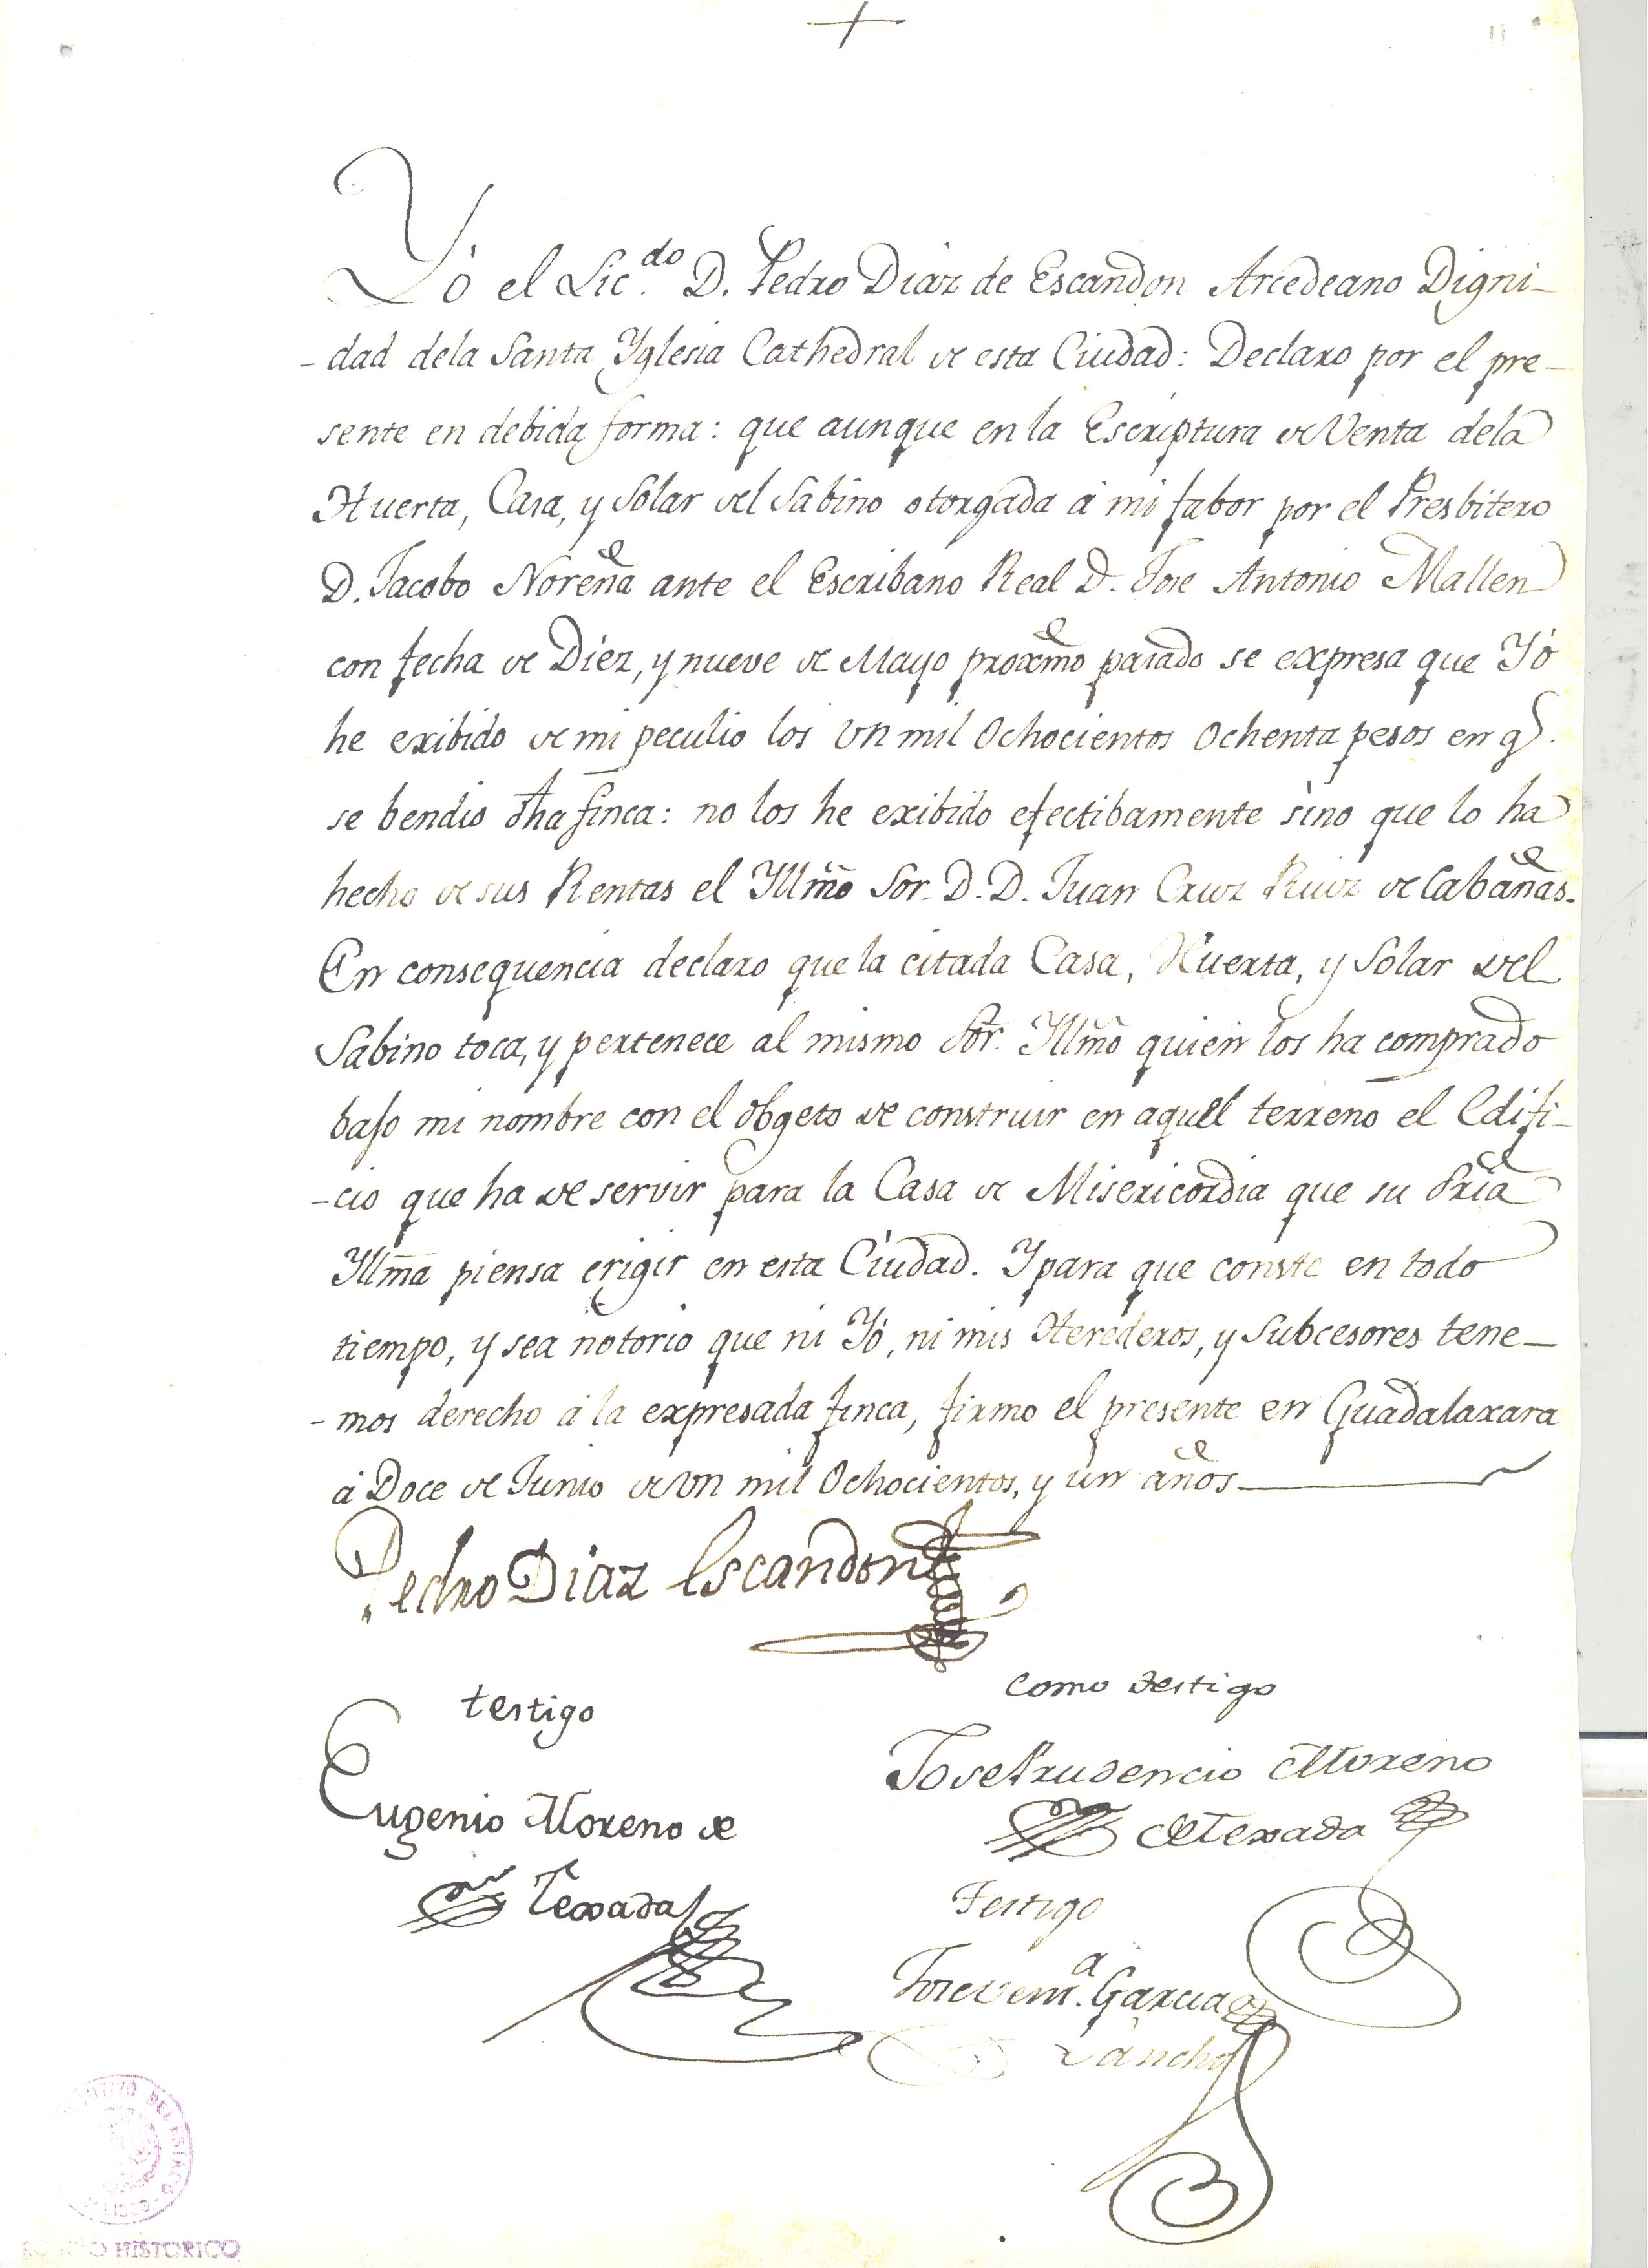 +
Yó el Lic.do D. Pedro Diaz de Escandon Arcedeano Digni-
-dad dela Santa Yglesia Cathedral de esta Ciudad: Declaro por el pre-
sente en debida forma: que aunque en la Escriptura de Venta dela
Huerta, Casa, y Solar del Sabino otorgada á mi fabor por el Presbitero
D. Jacobo Noreña ante el Escribano Real D. Jose Antonio Mallen
con fecha de Diéz, y nueve de Mayo proxmo pasado se expresa que Yó
he exibido de mi peculio los Un mil Ochocientos Ochenta pesos en q.
se bendio dha finca: no los he exibido efectibamente sino que lo ha
hecho de sus Rentas el Yllmõ Sor. D. D. Juan Cruz Ruiz de Cabañas.
En consequencia declaro que la citada Casa, Huerta, y Solar del
Sabino toca, y pertenece al mismo Sor. Yllmõ quien los ha comprado
bajo mi nombre con el obgeto de construir en aquel terreno el Edifi-
-cio que ha de servir para la Casa de Misericordia que su Sria
Yllma piensa erigir en esta Ciudad. Y para que conste en todo
tiempo, y sea notorio que ni Yó, ni mis Herederos, y Subcesores tene-
-mos derecho á la expresada finca, firmo el presente en Guadalaxara
á Doce de Junio de Un mil Ochocientos, y un años
Pedro Diaz Escandon
testigo
Como testigo
Eugenio Moreno de
Texada
Jose Prudencio Moreno
de Texada
Testigo
Jose Venta. Garcia
Sancho
DEL ESTADO
HISTORICO